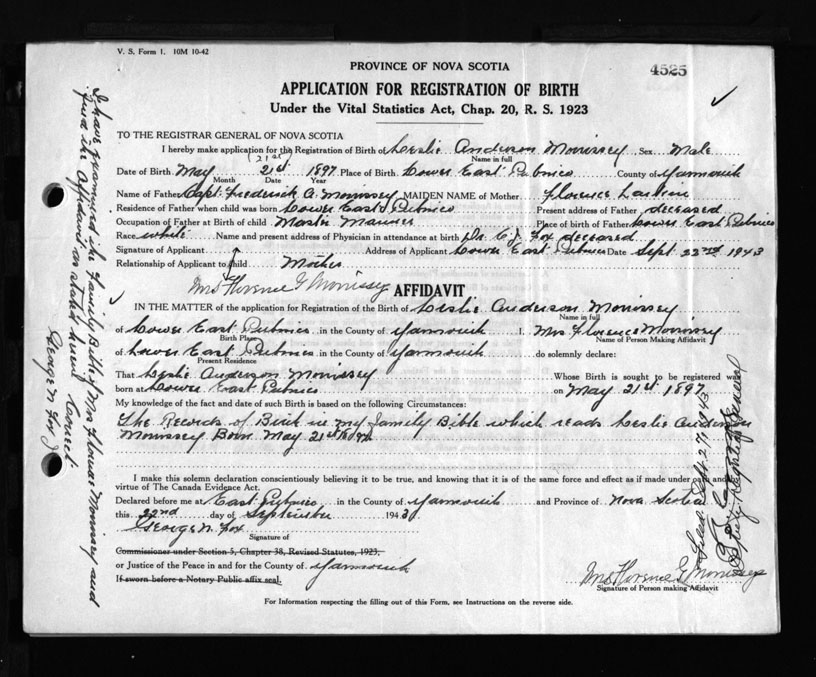 V. S. Form 1. 10M 10-42
PROVINCE OF NOVA SCOTIA
4525
APPLICATION FOR REGISTRATION OF BIRTH
Under the Vital Statistics Act, Chap. 20, R. S. 1923
TO THE REGISTRAR GENERAL OF NOVA SCOTIA
I hereby make application for the Registration of Birth of Leslie Anderson Morrissey Sex Male
Name in full
(21st)
Date of Birth May 21st 1897 Place of Birth Lower East Pubnico County of Yarmouth
Month Date Year
Name of Father Capt. Frederick A. Morrissey MAIDEN NAME of Mother Florence Larkin
Residence of Father when child was born Lower East Pubnico Present address of Father deceased
Occupation of Father at Birth of child Master Mariner Place of birth of Father Lower East Pubnico
Race White Name and present address of Physician in attendance at birth Dr. C. J. Fox deceased
Signature of Applicant Address of Applicant Lower East Pubnico Date Sept 22nd 1943
Relationship of Applicant to child Mother
Mrs Florence G Morrissy
AFFIDAVIT
IN THE MATTER of the application for Registration of the Birth of Leslie Anderson Morrissey
Name in full
of Lower East Pubnico in the County of Yarmouth I, Mrs. Florence Morrissey
Birth Place Name of Person Making Affidavit
of Lower East Pubnico in the County of Yarmouth do solemnly declare:
Present Residence
That Leslie Anderson Morrissey Whose Birth is sought to be registered was
born at Lower East Pubnico on May 21st 1897
My knowledge of the fact and date of such Birth is based on the following Circumstances:
The Records of Birth in my family Bible which reads Leslie Anderson
Morrissey Born May 21st 1897
I make this solemn declaration conscientiously believing it to be true, and knowing that it is of the same force and effect as if made under oath and
virtue of The Canada Evidence Act.
Declared before me at East Pubnico in the County of Yarmouth and Province of Nova Scotia
this 22nd day of September 1943
George N. Fox
Signature of
Commissioner under Section 5, Chapter 38, Revised Statutes, 1923,
or Justice of the Peace in and for the County of Yarmouth
If sworn before a Notary Public affix seal.
Mrs Florence G Morrissy
Signature of Person making Affidavit
For Information respecting the filling out of this Form, see Instructions on the reverse side.
I have examined the family Bible of Mrs Florence Morrissey and
find the Affidavit as stated herein Correct
George N Fox J
Sept. 27, 1943
Deputy Registrar General